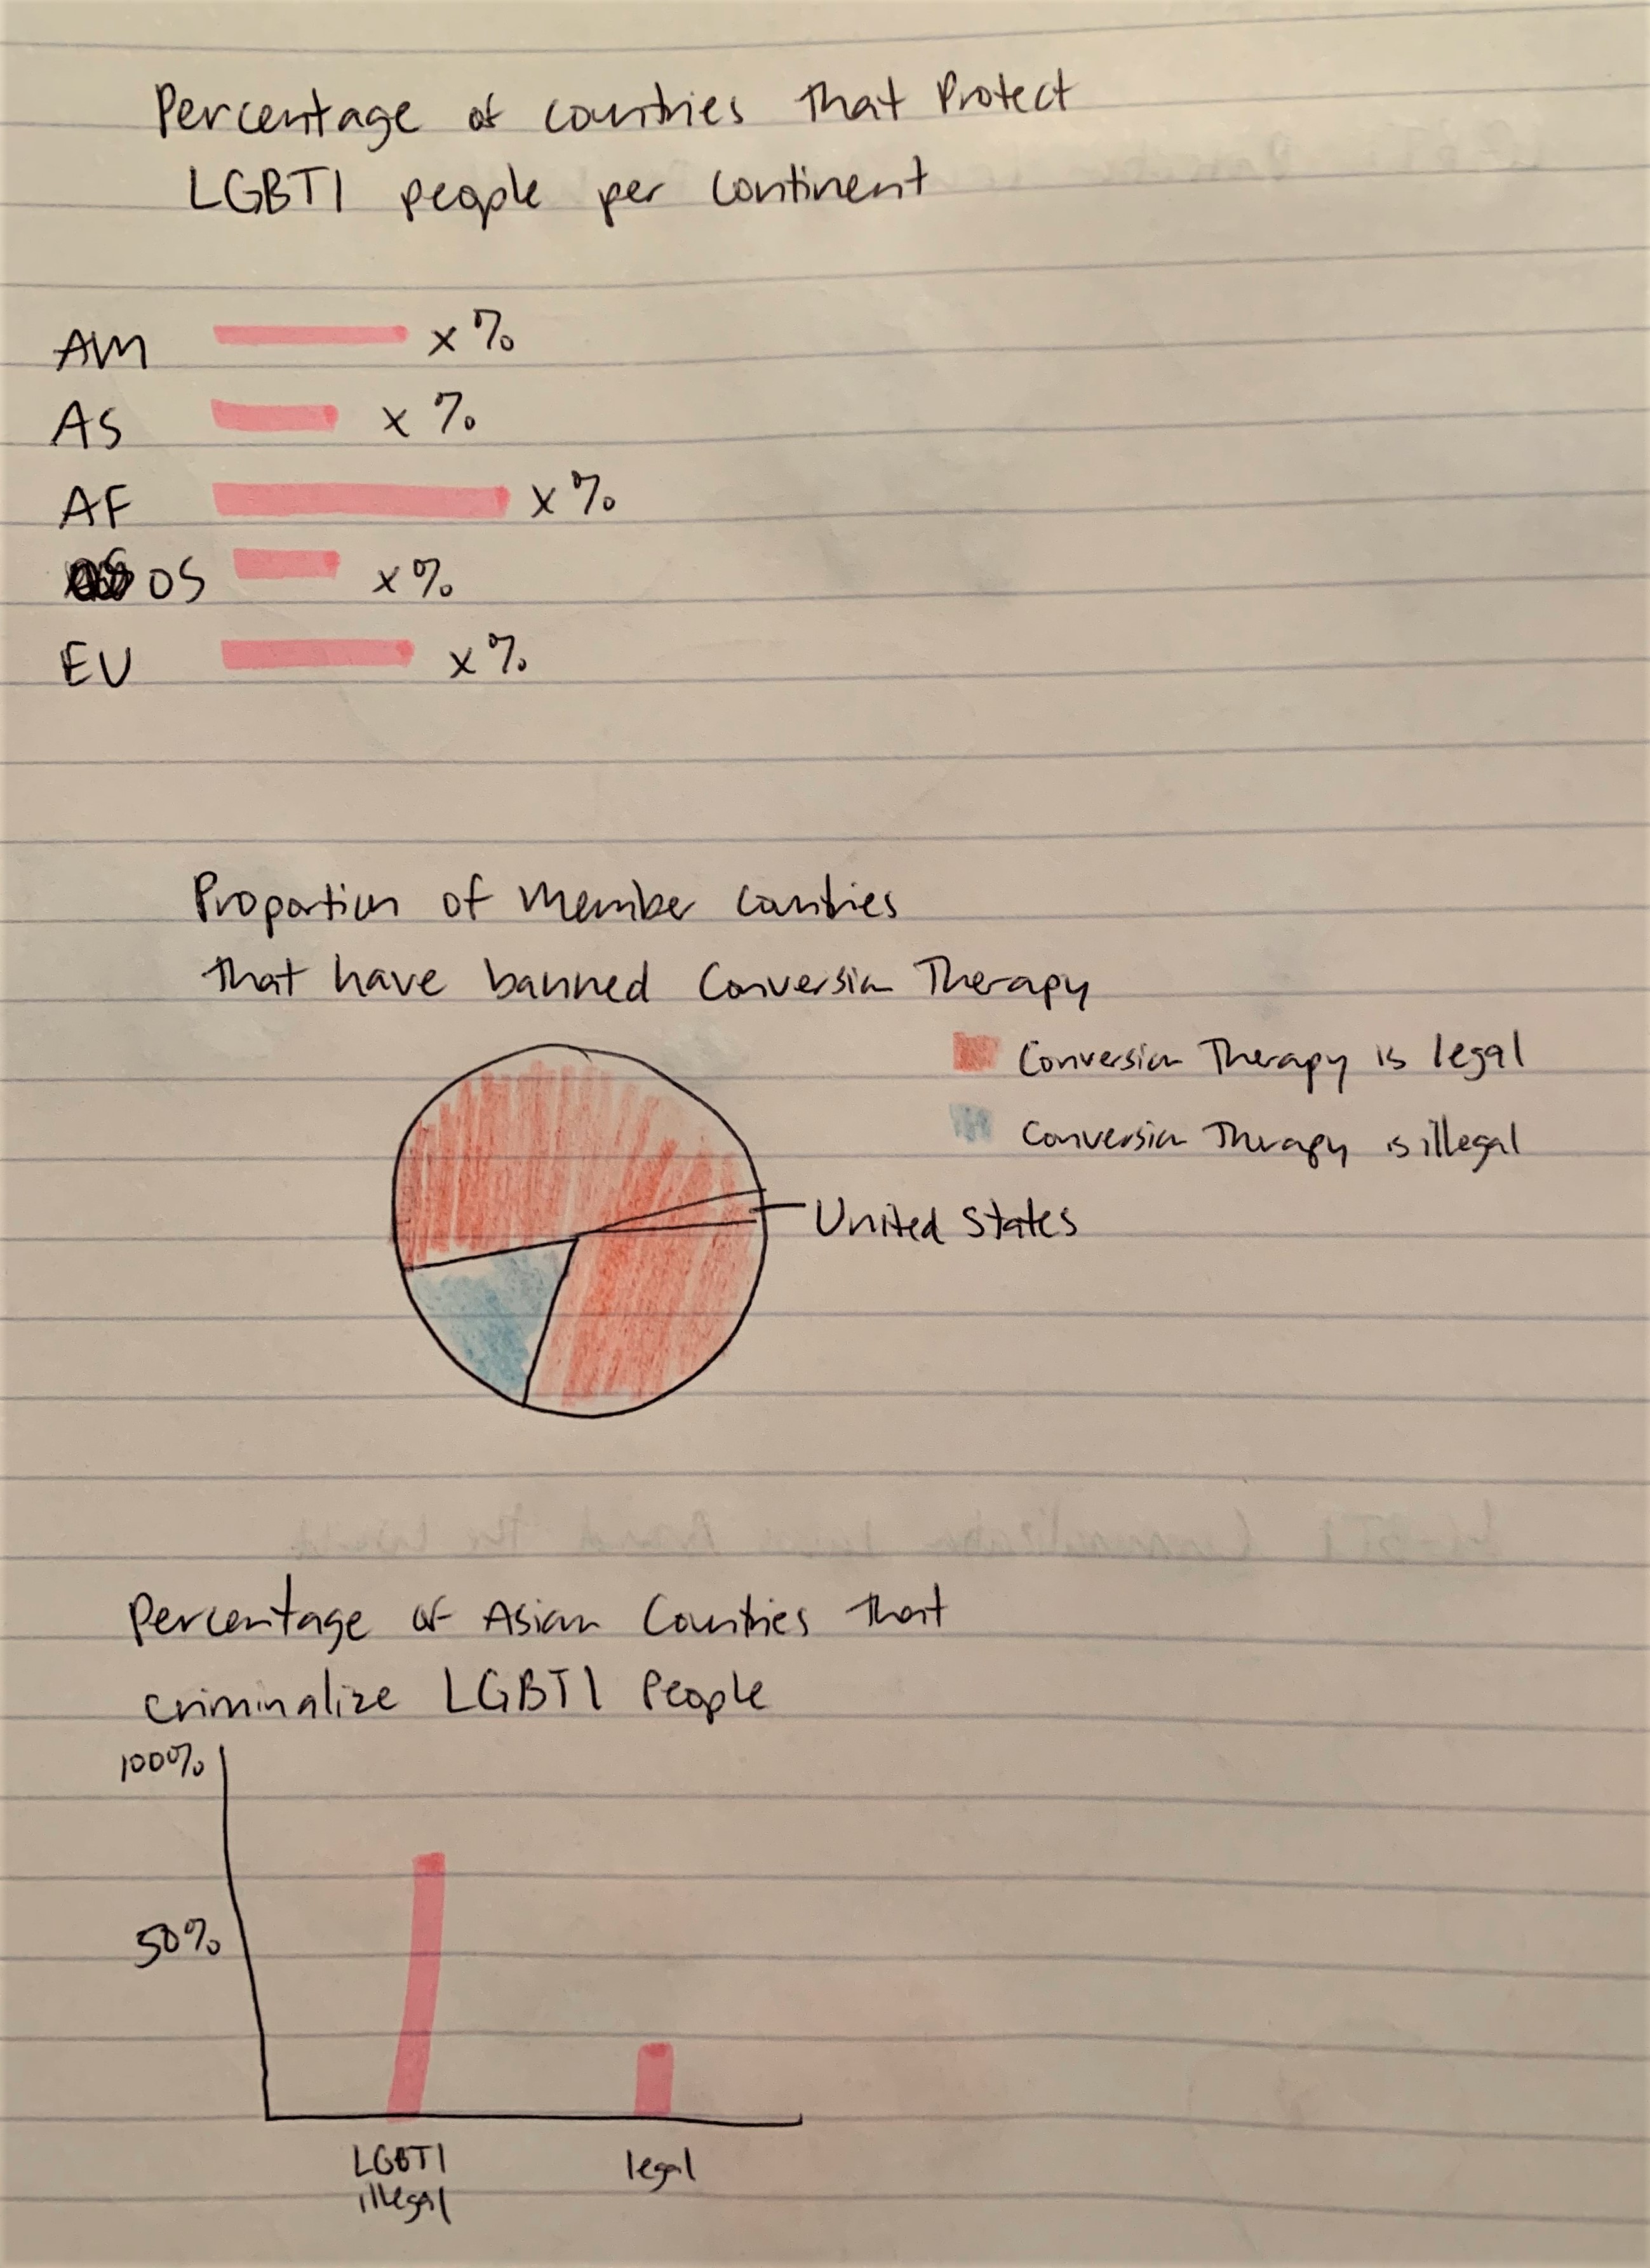 Percentage of countries that Protect
LGBTI people per continent
AM x%
AS x%
AF x%
OS x%
EU x%
Proportion of Member Countries
that have banned Conversion Therapy
Conversion Therapy is legal
Conversion Therapy is illegal
United States
Percentage of Asian Countries that
criminalize LGBTI People
100%
50%
LGBTI
illegal
legal